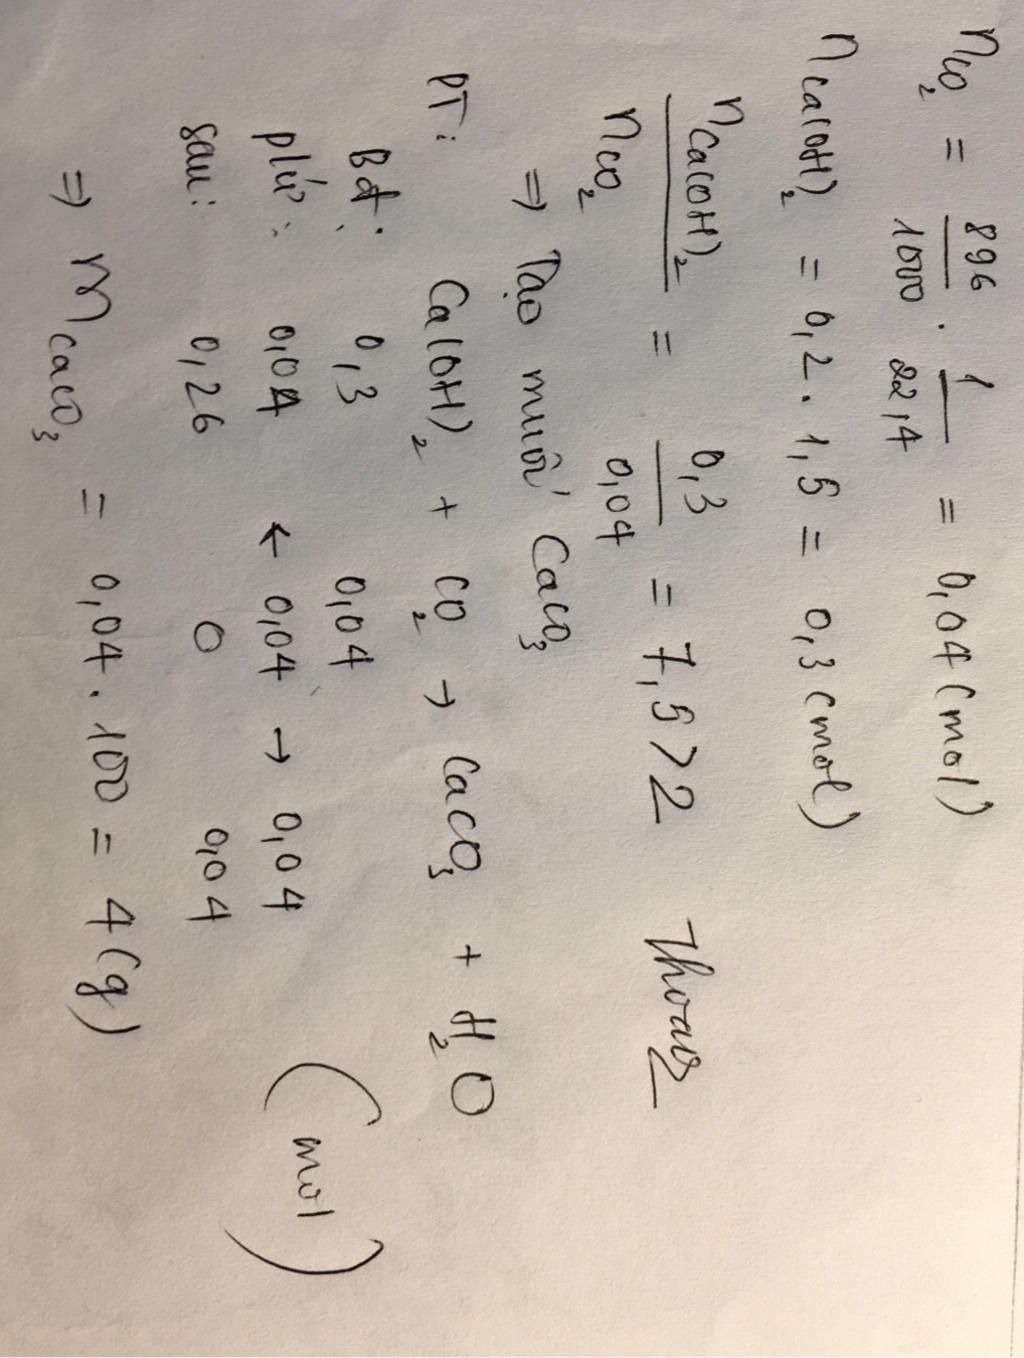 nCO₂ = 896/1000 . 1/22,4 = 0,04 (mol)
nCa(OH)₂ = 0,2 . 1,5 = 0,3 (mol)
nCa(OH)₂/nCO₂ = 0,3/0,04 = 7,5 > 2
⇒ Tạo muối CaCO₃
PT: Ca(OH)₂ + CO₂ → CaCO₃ + H₂O
Bđ: 0,3 0,04
phứ: 0,04 ← 0,04 → 0,04 (mol)
sau: 0,26 0 0,04
⇒ mCaCO₃ = 0,04 . 100 = 4 (g)